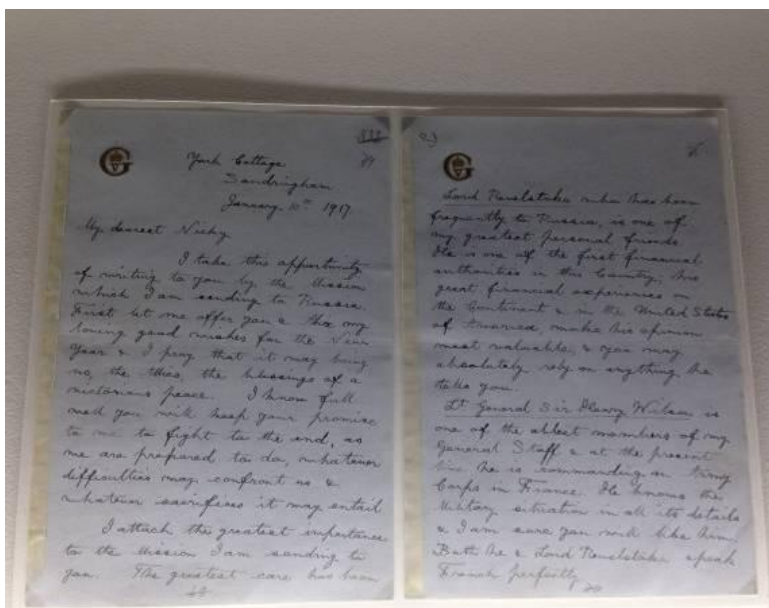 G
York Cottage
Sandringham
January 10th 1917
My dearest Nicky
I take this opportunity
of writing to you by the Mission
which I am sending to Russia.
First let me offer you & Alix my
loving good wishes for the New
Year & I pray that it may bring
us, the Allies, the blessings of a
victorious peace. I know full
well you will keep your promise
to me to fight to the end, as
we are prepared to do, whatever
difficulties may confront us &
whatever sacrifices it may entail
I attach the greatest importance
to the Mission I am sending to
you. The greatest care has been
2)
G
Lord Revelstoke who has been
frequently to Russia, is one of
my greatest personal friends
He is one of the first financial
authorities in this Country, his
great financial experiences on
the Continent & in the United States
of America, make his opinion
most valuable, & you may
absolutely rely on anything he
tells you.
Lt General Sir Henry Wilson is
one of the ablest members of my
General Staff & at the present
time he is commanding an Army
Corps in France. He knows the
Military situation in all its details
& I am sure you will like him.
Both he & Lord Revelstoke speak
French perfectly